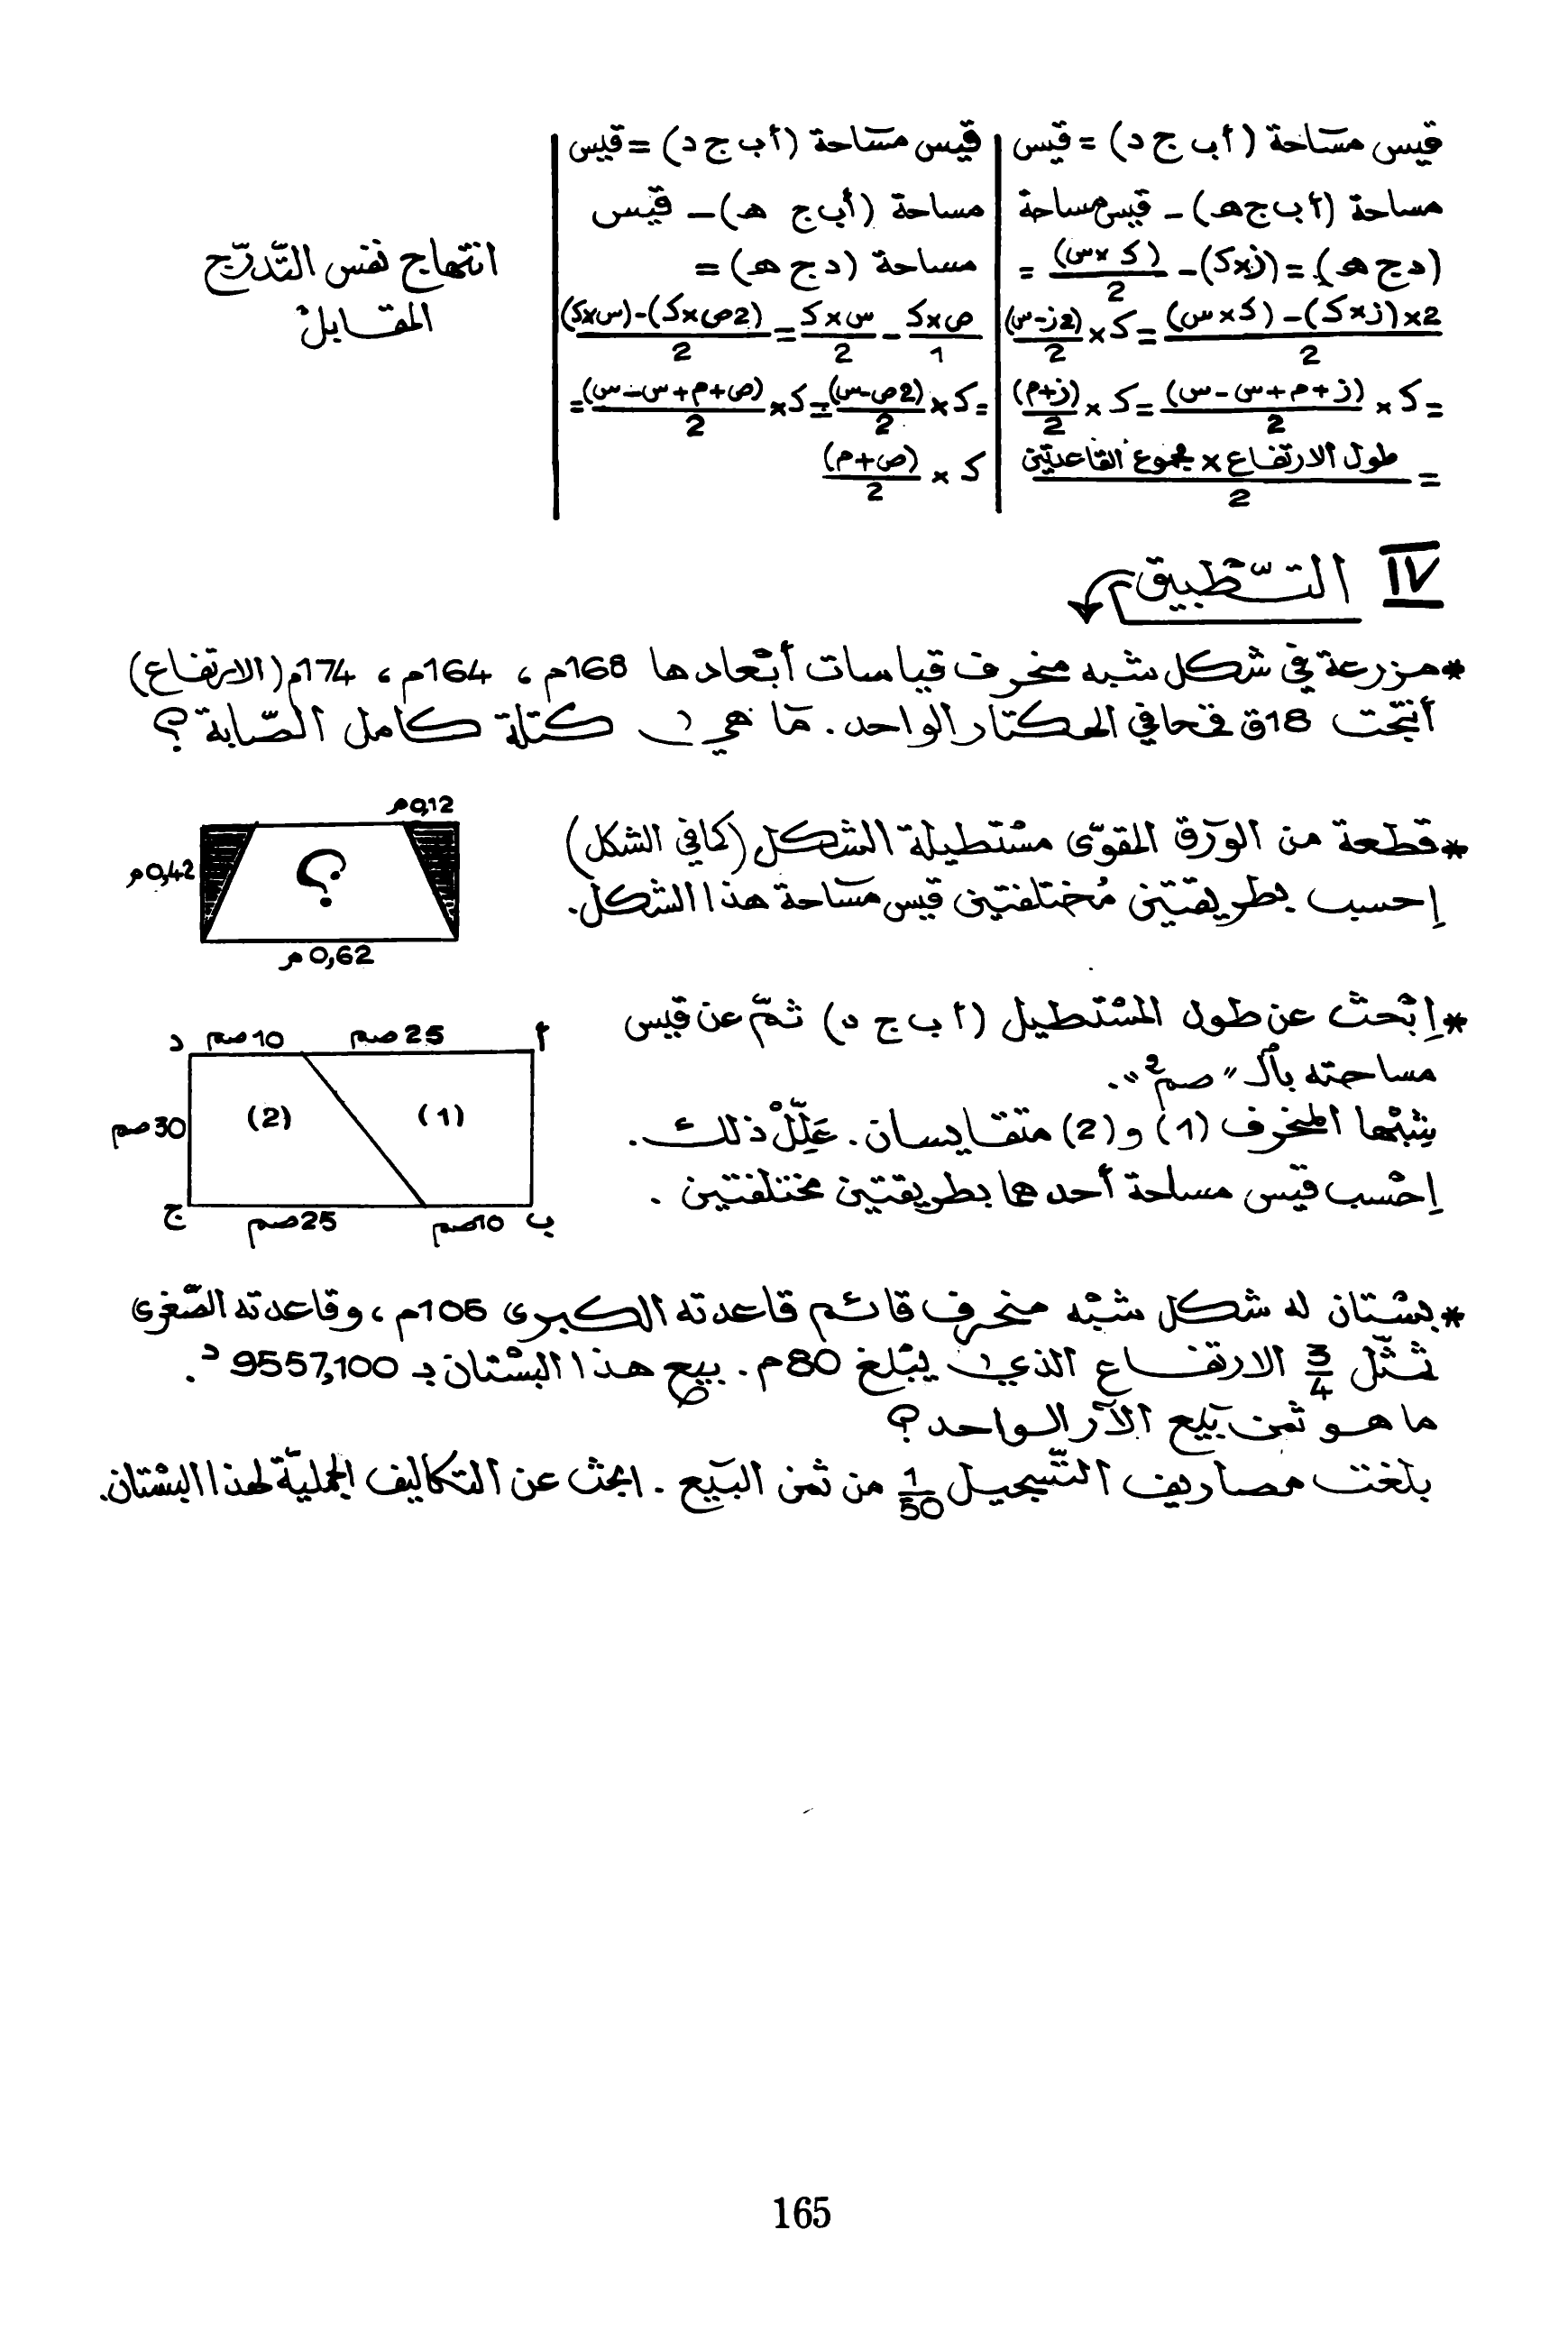 قيس مسَاحة (أب ج د) = قيس
مساحة (أب ج ھ) - قيس مساحة
(د ج ھ) = (ز×ك) - (ك×س)/2 =
2×(ز×ك) - (ك×س)/2 = ك × (2ز-س)/2
= ك × (ز+م+س-س)/2 = ك × (ز+م)/2
= طول الارتفاع × مجموع القاعدتين/2
قيس مسَاحة (أب ج د) = قيس
مساحة (أب ج ھ) - قيس
مساحة (د ج ھ) =
ص×ك/1 - س×ك/2 = (2ص×ك)-(س×ك)/2
= ك × (2ص-س)/2 = ك × (ص+م+س-س)/2 =
ك × (ص+م)/2
انتهاج نفس التّدرّج
المقابل
IV التّطبيق
* مزرعة في شكل شبه منحرف قياسات أبْعادها 168م ، 164م ، 174م (الارتفاع)
أنتجت 18ق قمحا في الهكتار الواحد . مَا هي كتلة كامل الصّابة ؟
* قطعة من الورَق المقوّى مسْتطيلة الشكل (كما في الشكل)
إحسب بطريقتيْن مُختلفتين قيس مسَاحة هذا الشكل.
0,12م
0,42م
؟
0,62م
* اِبْحثْ عن طول المسْتطيل (أ ب ج د) ثمّ عن قيْس
مساحته بالـ "صم2".
شِبْهَا المنحرف (1) و (2) متقايسان . عَلِّلْ ذلك .
اِحْسب قيْس مساحة أحدهما بطريقتين مختلفتين .
أ
25صم
10صم
د
(1)
(2)
30صم
ب
10صم
25صم
ج
* بسْتان له شكل شبْه منحرف قائم قاعدته الكبرى 105م ، وقاعدته الصّغرى
تمثّل 3/4 الارتفاع الذي يبْلغ 80م . بيع هذا البسْتان بـ 9557,100 د .
ما هو ثمن بيْع الآر الواحد ؟
بلغت مصاريف التّسجيل 1/50 من ثمن البيْع . ابحث عن التكاليف الجمليّة لهذا البسْتان.
165